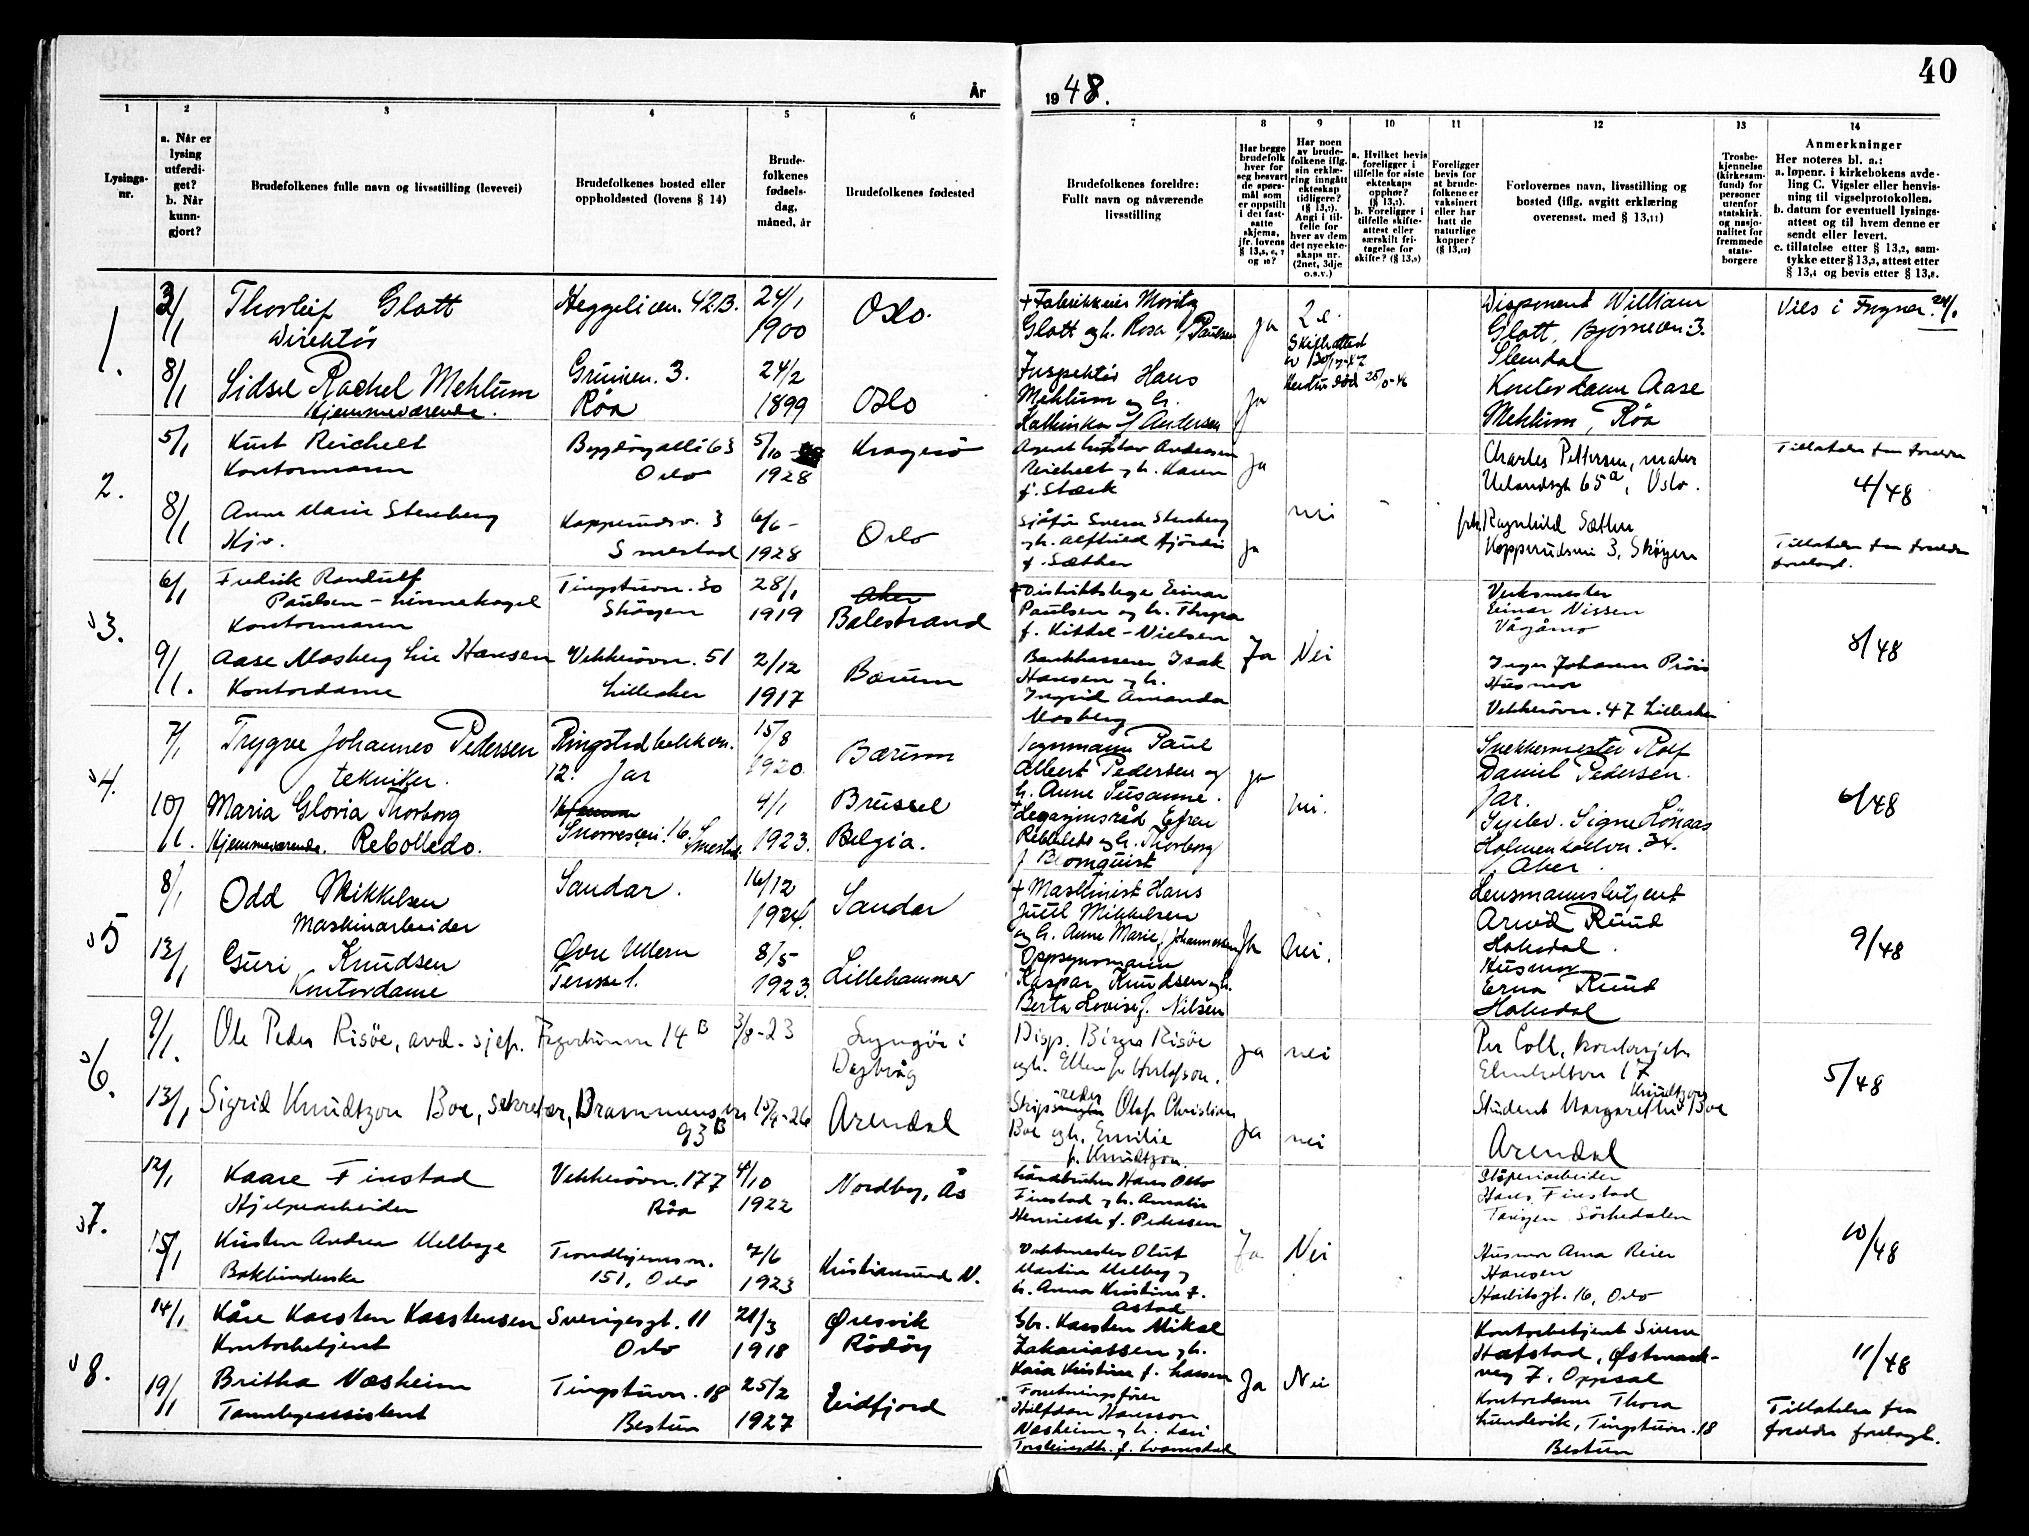 40
År
19 48.
1
2
3
4
5
6
7
8
9
10
11
12
13
14
Lysings-
nr.
a. Når er
lysing
utferdi-
get?
b. Når
kunn-
gjort?
Brudefolkenes fulle navn og livsstilling (levevei)
Brudefolkenes bosted eller
oppholdssted (lovens § 14)
Brude-
folkenes
fødsels-
dag,
måned, år
Brudefolkenes fødested
Brudefolkenes foreldre:
Fullt navn og nåværende
livsstilling
Har begge
brudefolk
hver for
seg besvart
de spørs-
mål som
er oppstilt
i det fast-
satte
skjema,
jfr. lovens
§ 13,5, 6, 7
og 10?
Har noen
av brude-
folkene iflg.
sin erklæ-
ring inngått
ekteskap
tidligere?
(§ 13,7).
Angi i til-
felle for
hver av dem
det nye ekte-
skaps nr.
(2net, 3dje
o.s.v.)
a. Hvilket bevis
foreligger i
tilfelle for siste
ekteskaps
opphør?
(§ 13,7).
b. Foreligger i
tilfelle skifte-
attest eller
særskilt fri-
tagelse for
skifte? (§ 13,9)
Foreligger
bevis for
at brude-
folkene er
vaksinert
eller har
hatt de
naturlige
kopper?
(§ 13,10)
Forlovernes navn, livsstilling og
bosted (iflg. avgitt erklæring
overensst. med § 13,11)
Trosbe-
kjennelse
(kirkesam-
fund) for
personer
utenfor
statskirk.
og nasjo-
nalitet for
fremmede
stats-
borgere
Anmerkninger
Her noteres bl. a.:
a. løpenr. i kirkebokens avde-
ling C. Vigsler eller henvis-
ning til vigselprotokollen.
b. datum for eventuell lysings-
attest og til hvem denne er
sendt eller levert.
c. tillatelse etter § 13,2, sam-
tykke etter § 13,3, attest etter
§ 13,4 og bevis etter § 13,8.
1.
3/1
Thorleif Glott
Direktør
Heggelivn. 42 B.
24/1
1900
Oslo.
+ Fabrikkeier Moritz
Glott og h. Rosa f. Paulsen
ja
2 e.
Skifteattest
Disponent William
Glott, Bjørnevn. 3.
Slemdal
Vies i Frogner 24/1
8/1
Sidsel Rachel Mehlum
Hjemmeværende.
Grinien. 3.
Røa
24/2
1899
Oslo
Inspektør Hans
Mehlum og h.
Kathinka f. Andersen
Ja
Kontordame Aase
Mehlum, Røa
2.
5/1
Kurt Reichelt
Kontormann
Bygdøyallé 63
Oslo
5/10
1928
Kragerø
Agent Gustav Andreasen
Reichelt og h. Karen
f. Stærk
Ja
Charles Pettersen, maler
Uelandsgt 65a, Oslo.
Tillatelse fra foreldre
4/48
8/1
Anne Marie Stenberg
Hjv.
Kopperudsv. 3
Smestad
6/6 -
1928
Oslo
Sjåfør Svein Stenberg
og h. Alfhild Hjørdis
f. Sæther
Ja
nei
-
frk. Ragnhild Sæther
Kopperudveien 3, Skøyen
Tillatelse fra foreldre
forelagt.
3.
6/1
Fredrik Randulf
Paulsen - Linnekogel
Kontormann
Tingstuvn. 30
Skøyen
28/1
1919
Aker
Balestrand
+ Distriktslege Einar
Paulsen og h. Thyra
f. Kittel-Nielsen
Ja
Nei
Verksmester
Einar Nissen
Vågåmo
8/48
9/1.
Aase Mosberg Lie Hansen
Kontordame
Vekkerøvn. 51
Lilleaker
2/12
1917
Bærum
Bankkasserer Isak
Hansen og h.
Ingrid Amanda
Mosberg
Inger Johanne Prøis
Husmor
Vekkerøvn. 47 Lilleaker
4.
7/1
Trygve Johannes Pedersen
tekniker.
Ringstedbekkvn.
12. Jar
15/8
1920.
Bærum
Tegnmann Paul
Albert Pedersen og
h. Anne Susanne.
ja
nei.
Snekkermester Rolf
Daniel Pedersen.
Jar.
6/48
10/1.
Maria Gloria Thorborg
Hjemmeværende. Rebolledo.
Snorresvei. 16. Smestad.
4/1
1923.
Brussel
Belgia.
+ Legasjonsråd Efren
Rebolledo og h. Thorborg
f. Blomquist
Sykev. Signe Lönaas
Holmenkollvn. 34.
V. Aker.
5
8/1
Odd Mikkelsen
Maskinarbeider
Sandar.
16/12
1924.
Sandar
+ Maskinist Hans
Juul Mikkelsen
og h. Anne Marie f. Johannessen
Ja
nei.
Lensmannsbetjent
Arvid Ruud
Hakadal.
9/48
13/1
Guri Knudsen
Kontordame
Øvre Ullern
Terasse 1.
8/5-
1923.
Lillehammer
Oppsynsmann
Kaspar Knudsen og h.
Berta Lovise f. Nilsen
Husmor
Erna Ruud
Hakadal
6.
9/1.
Ole Peder Risöe, avd. sjef.
Fagertunvn 14 B
3/8-23
Lyngör i
Dypvåg
Disp. Birger Risöe
og h. Ellen f. Gustafson.
ja
nei
Per Coll, kontorsjef
Elmholtvn 17
5/48
13/1
Sigrid Knudtzon Boe, sekretær,
Drammensvn
93 B
15/4-26
Arendal
Skipsreder Olaf Christian
Boe og h. Emilie
f. Knudtzon.
Ja
nei
Student Margarethe Knudtzon Boe
Arendal
7.
12/1
Kaare Finstad
Hjelpearbeider
Vekkerøvn. 177
Røa
4/10
1922
Nordby, Ås
Gårdbruker Hans Otto
Finstad og h. Amalie
Henriette f. Pedersen
Ja
Nei
Støperiarbeider
Hans Finstad
Tangen Sørkedalen
10/48
15/1
Kirsten Andrea Melbye
Bokbinderske
Trondhjemsvn.
151, Oslo
7/6
1923
Kristiansund N.
Vaktmester Oluf
Martin Melby og
h. Anna Kristine f.
Astad
Husmor Anna Reier
Hansen
Harbitzgt. 16, Oslo
8.
14/1
Kåre Karsten Karstensen
Kontorbetjent
Sverigesgt. 11
Oslo
21/3
1918
Øresvik
Rødøy
Gbr. Karsten Mikal
Zakariassen og h.
Kaia Kristine f. Larsen
Ja
Nei
Kontorbetjent Sverre
Hafstad, Østmark-
veg 7, Oppsal
11/48
19/1
Britha Næsheim
Tannlegeassistent
Tingstuvn. 18
Bestun
25/2
1927
Eidfjord
Forretningsfører
Halfdan Hansson
Næsheim og h. Kari
Torsteinsdtr. f. Kvamsdal
Kontordame Thora
Lundevik, Tingstuvn. 18
Bestun
Tillatelse fra
foreldre forelagt.